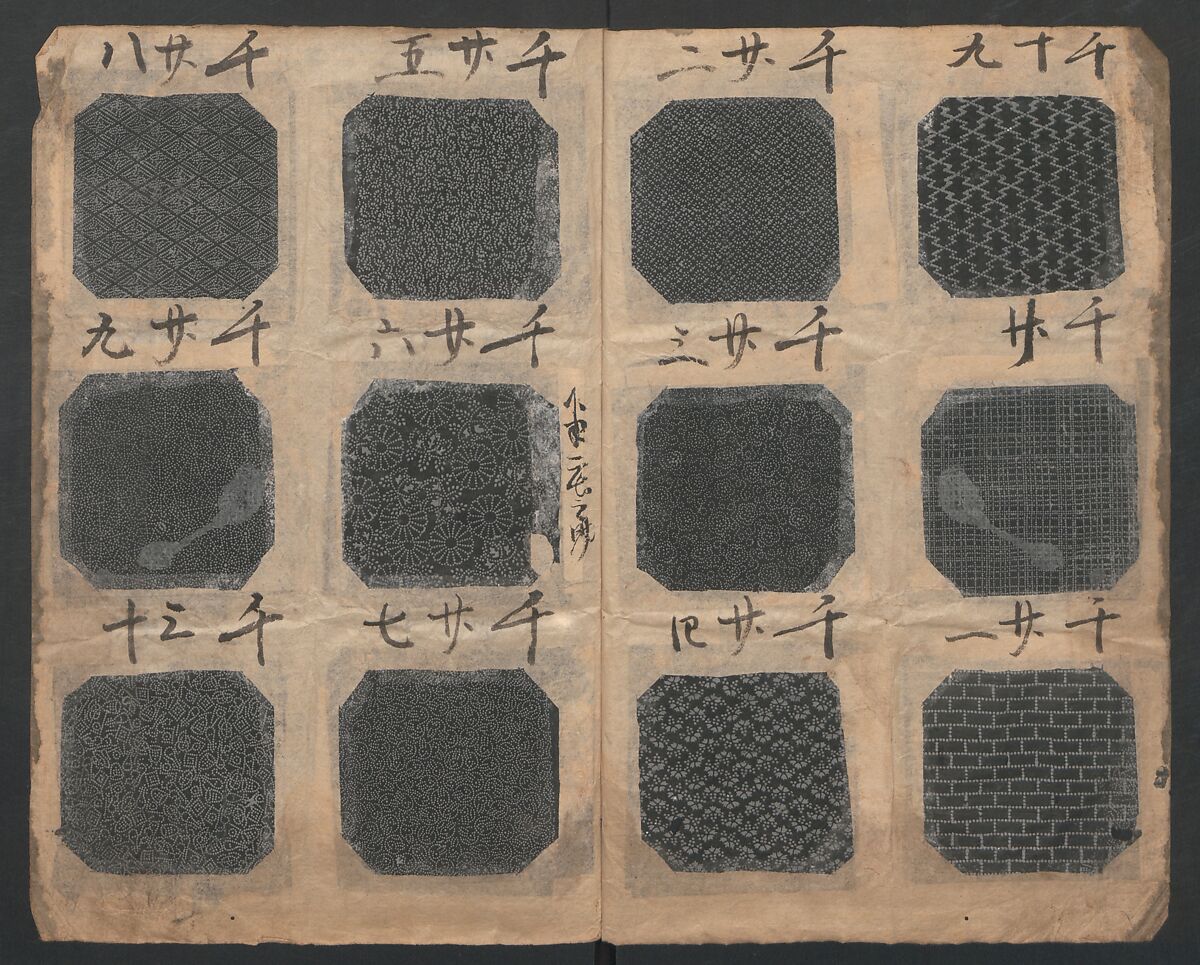 千十九
千廿
千廿一
千廿二
千廿三
千廿四
千廿五
千廿六
千廿七
千廿八
千廿九
千三十